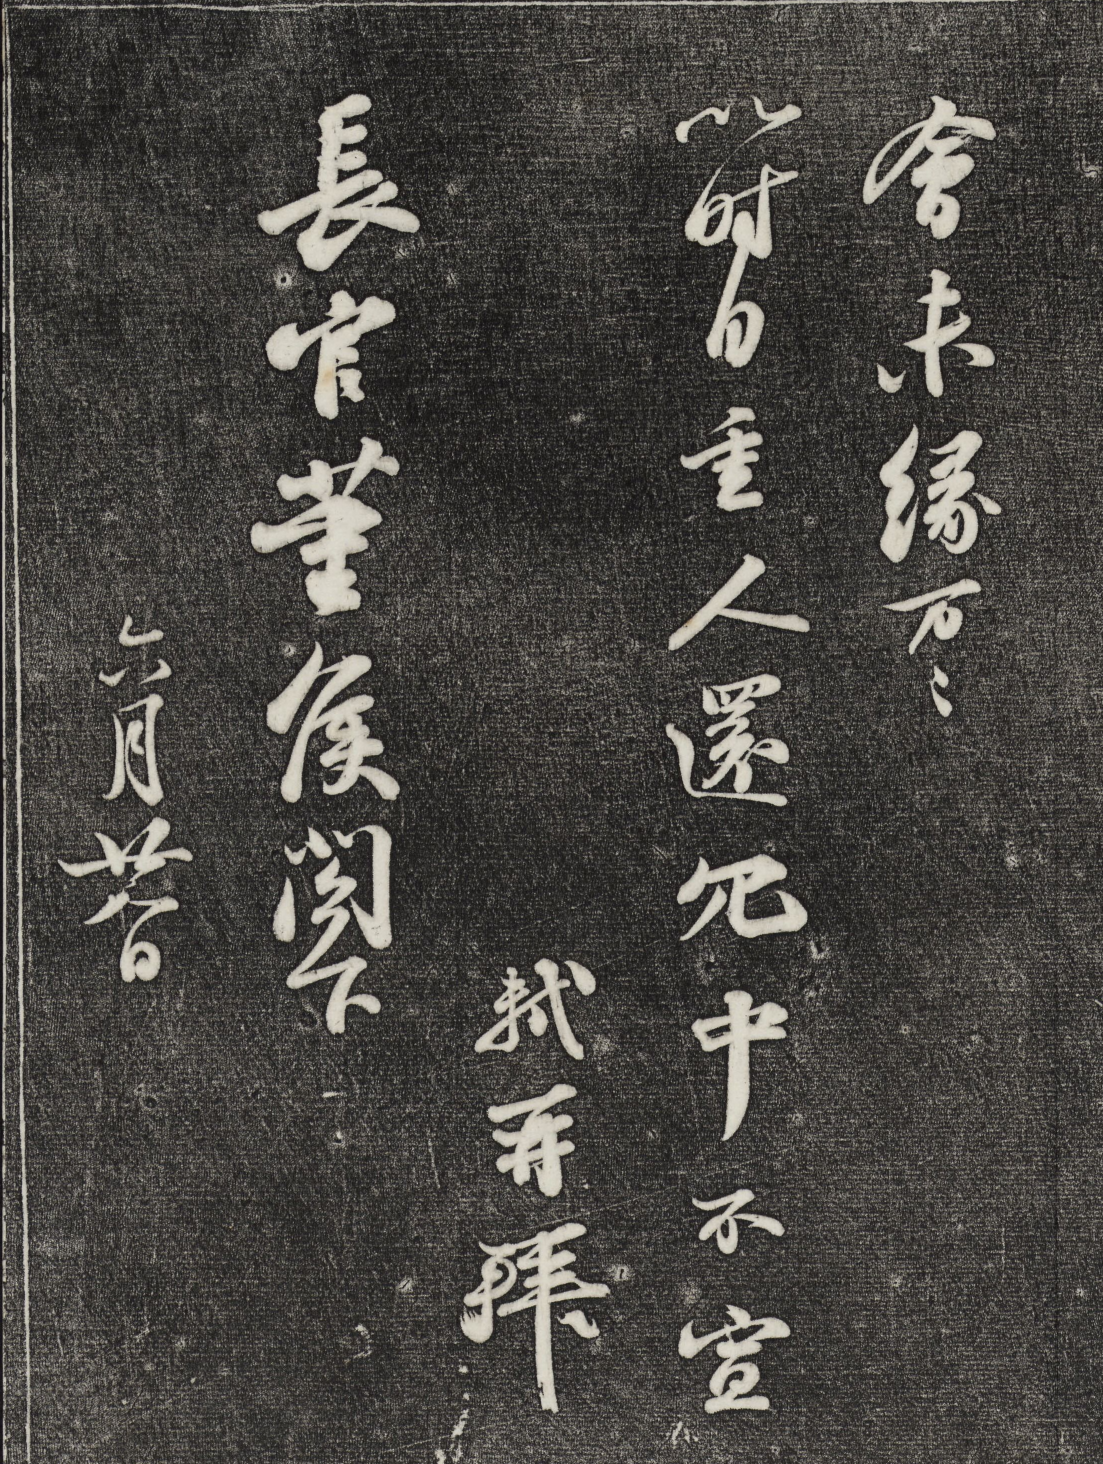 會未緣万〻
以時自重人還冗中不宣
軾再拜
長官董侯閣下
六月廿八日